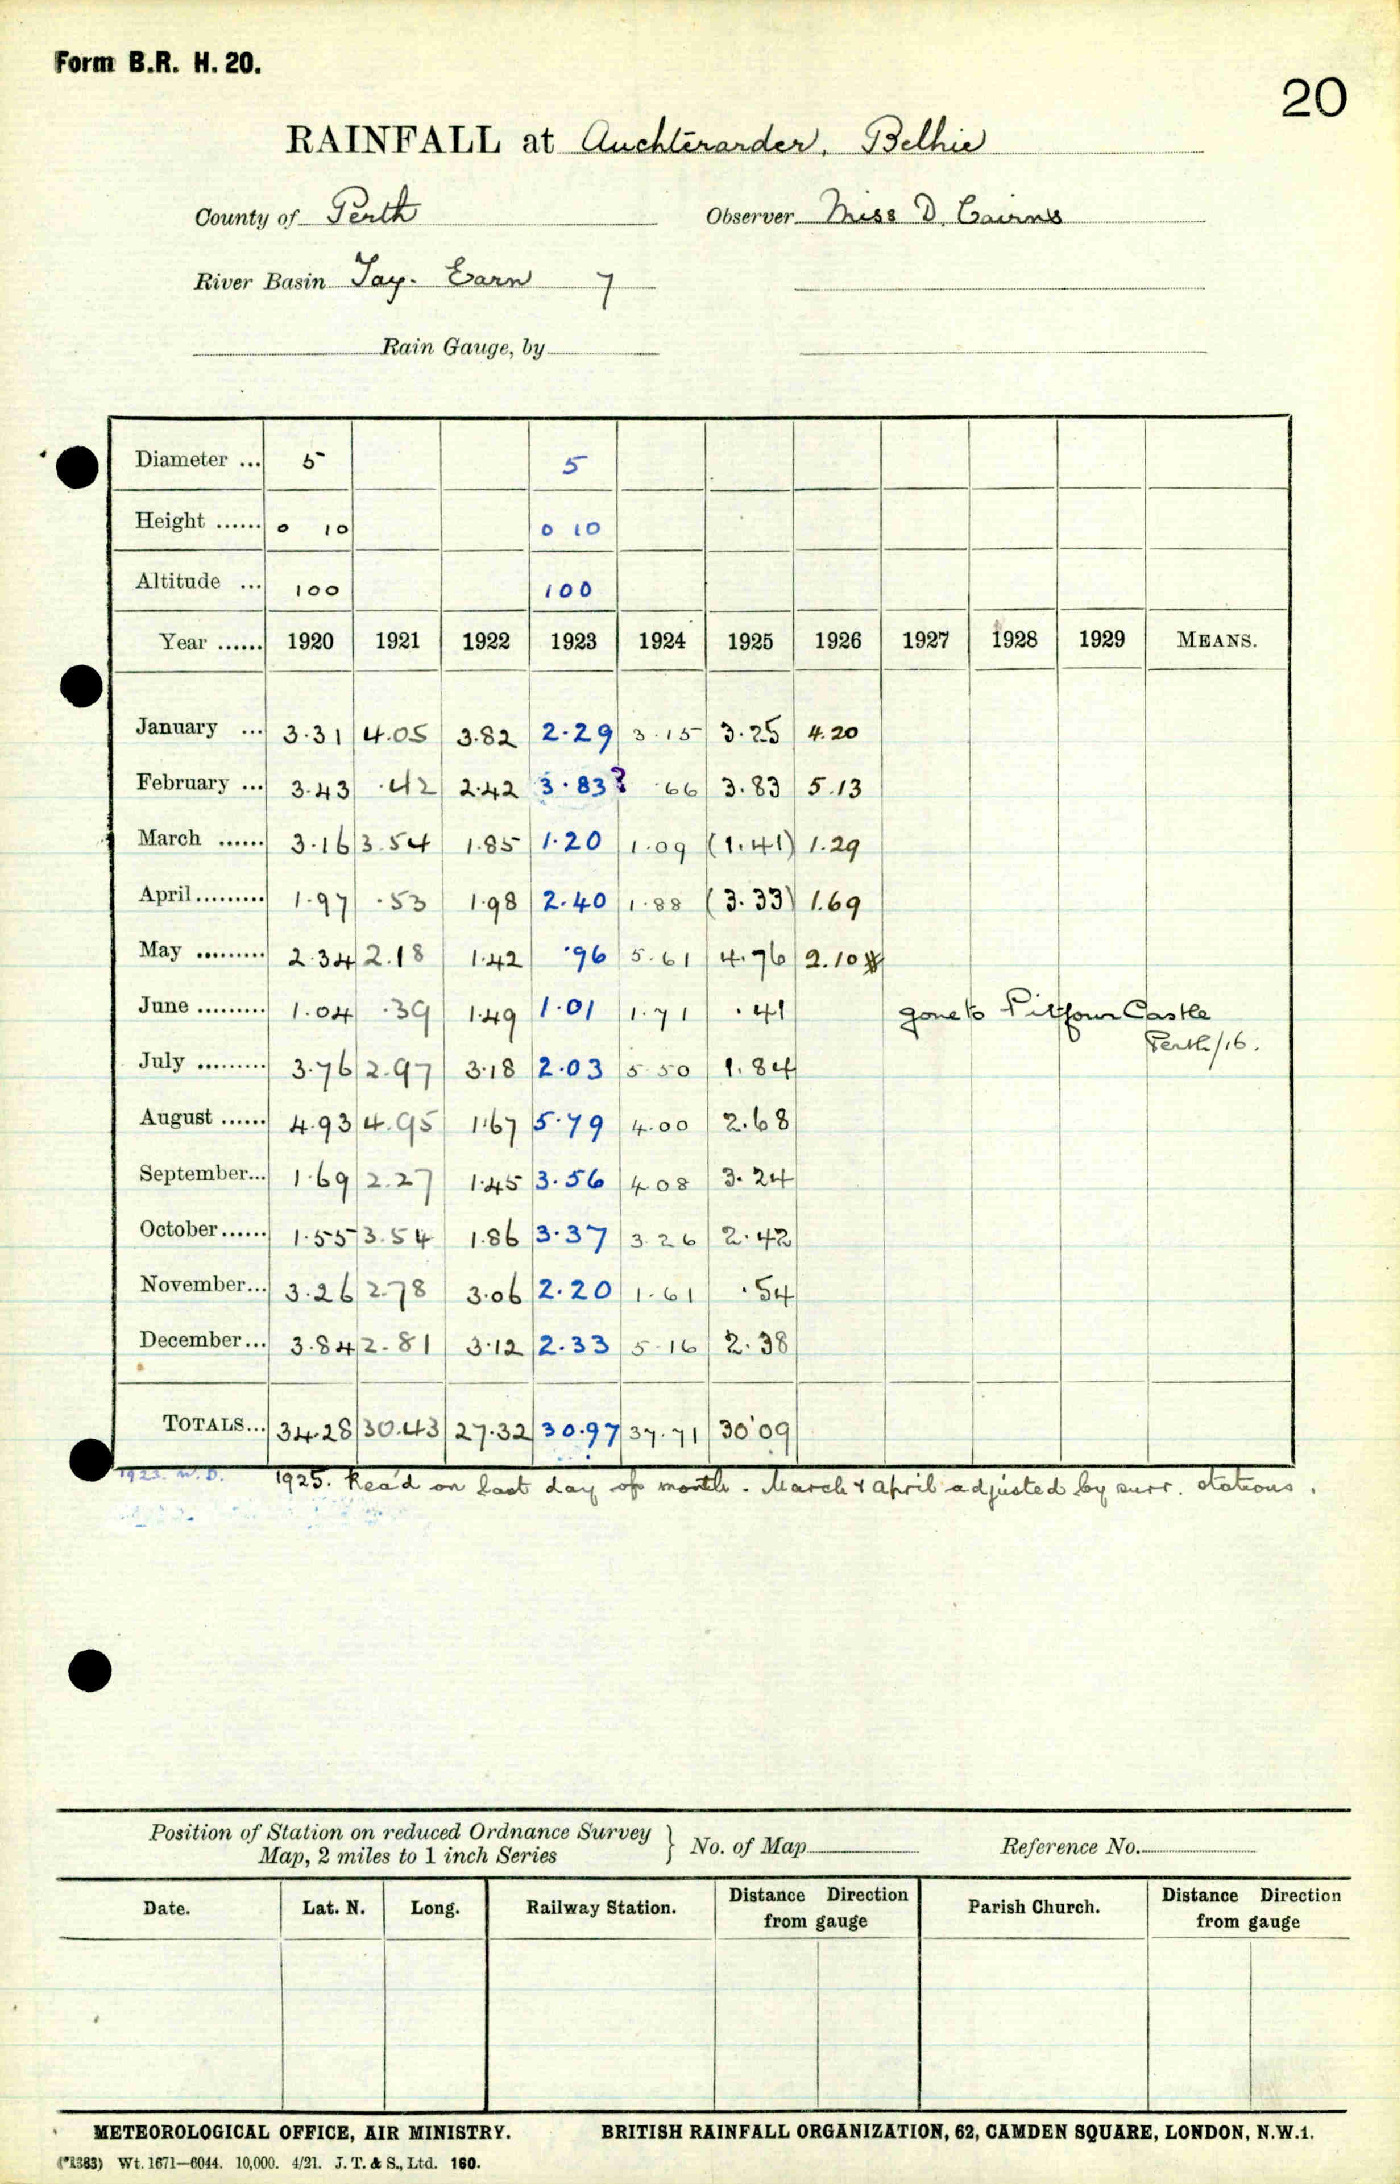 Form B.R. H. 20.
20
RAINFALL at Auchterarder, Belhie
County of Perth Observer Miss D. Cairns
River Basin Tay. Earn 7
Rain Gauge, by
Diameter ... 5 5
Height ...... 0 10 0 10
Altitude ... 100 100
Year ...... 1920 1921 1922 1923 1924 1925 1926 1927 1928 1929 MEANS.
January ... 3.31 4.05 3.82 2.29 3.15 3.25 4.20
February ... 3.43 .42 2.42 3.83? .66 3.83 5.13
March ...... 3.16 3.54 1.85 1.20 1.09 (1.41) 1.29
April......... 1.97 .53 1.98 2.40 1.88 (3.33) 1.69
May ......... 2.34 2.18 1.42 .96 5.61 4.76 2.10
June ......... 1.04 .39 1.49 1.01 1.71 .41 gone to Pitfour Castle
Perth/16.
July ......... 3.76 2.97 3.18 2.03 5.50 1.84
August ...... 4.93 4.95 1.67 5.79 4.00 2.68
September... 1.69 2.27 1.45 3.56 4.08 3.24
October...... 1.55 3.54 1.86 3.37 3.26 2.42
November... 3.26 2.78 3.06 2.20 1.61 .54
December... 3.84 2.81 3.12 2.33 5.16 2.38
TOTALS... 34.28 30.43 27.32 30.97 37.71 30.09
1923. W.D. 1925. Read on last day of month. March & April adjusted by surr. stations.
Position of Station on reduced Ordnance Survey
Map, 2 miles to 1 inch Series } No. of Map Reference No.
Date. Lat. N. Long. Railway Station. Distance Direction from gauge Parish Church. Distance Direction from gauge
METEOROLOGICAL OFFICE, AIR MINISTRY. BRITISH RAINFALL ORGANIZATION, 62, CAMDEN SQUARE, LONDON, N.W.1.
(*1383) Wt. 1671—6044. 10,000. 4/21. J. T. & S., Ltd. 160.